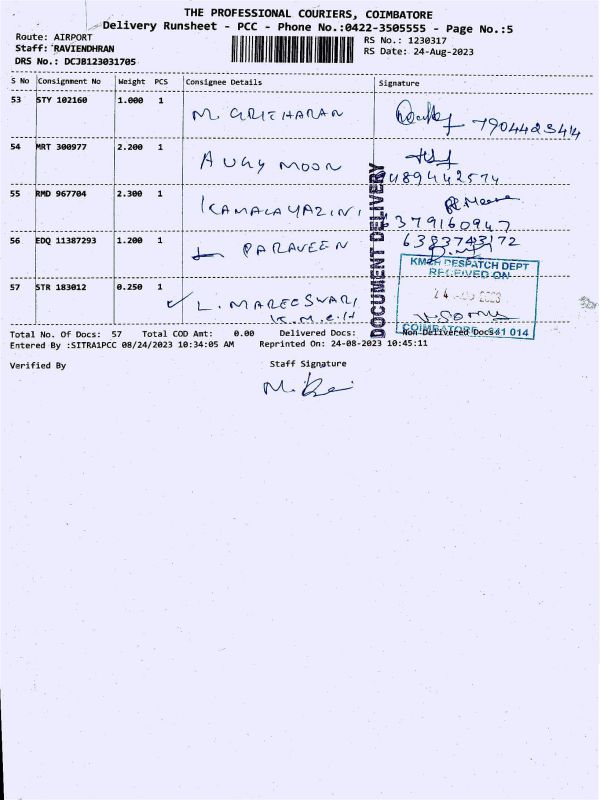 THE PROFESSIONAL COURIERS, COIMBATORE
Delivery Runsheet - PCC - Phone No.:0422-3505555 - Page No.:5
Route: AIRPORT
RS No.: 1230317
Staff: RAVIENDHRAN
RS Date: 24-Aug-2023
DRS No.: DCJB123031705
S No Consignment No Weight PCS Consignee Details Signature
53 STY 102160 1.000 1 M. GRITHARAN 7904423414
54 MRT 300977 2.200 1 MOON 9489442574
55 RMD 967704 2.300 1 KAMALAYAZINI 6379160947
56 EDQ 11387293 1.200 1 PARAVEEN 6383743172
57 STR 183012 0.250 1 L. MAREESWARI
K.M.C.H
DOCUMENT DELIVERY
KMCH DESPATCH DEPT
RECEIVED ON
24 2023
COIMBATORE - 641 014
Total No. Of Docs: 57 Total COD Amt: 0.00 Delivered Docs: Non-Delivered Docs:
Entered By :SITRA1PCC 08/24/2023 10:34:05 AM Reprinted On: 24-08-2023 10:45:11
Verified By Staff Signature